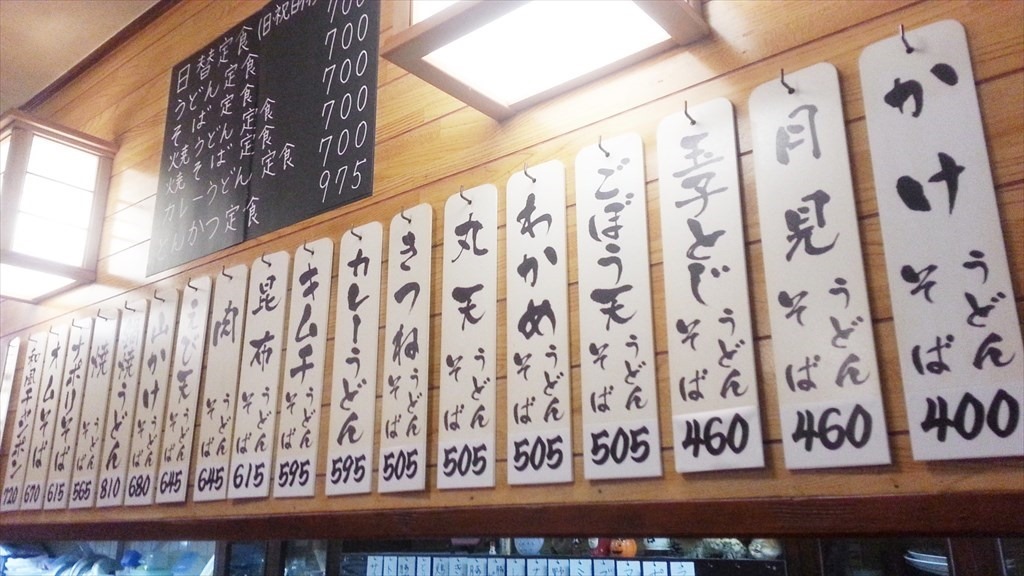 (日・祝日
日替定食 700
うどん定食 700
そば定食 700
焼うどん定食 700
焼そば定食 700
カレーうどん定食
とんかつ定食 975
かけ うどん そば 400
月見 うどん そば 460
玉子とじ うどん そば 460
ごぼう天 うどん そば 505
わかめ うどん そば 505
丸天 うどん そば 505
きつね うどん そば 505
カレーうどん 595
キムチ うどん そば 595
昆布 うどん そば 615
肉 うどん そば 645
天 うどん そば 645
山かけ うどん そば 680
焼うどん 810
焼 565
ナポリそば 615
オムそば 670
720